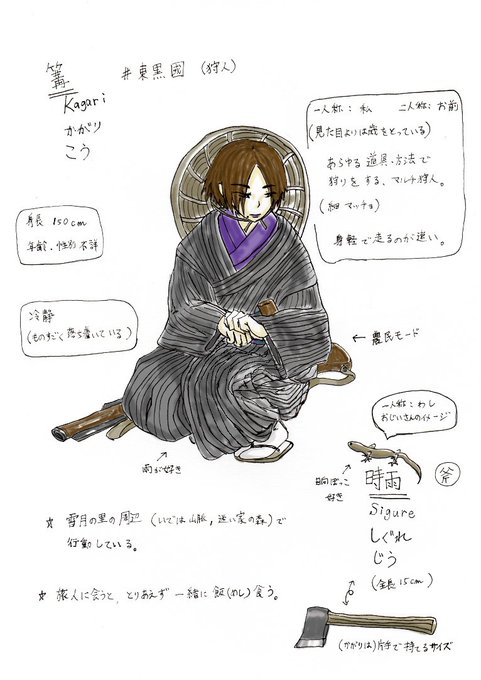 篝
Kagari
かがり
こう
#東黒國 (狩人)
一人称：私 二人称：お前
(見た目よりは歳をとっている)
あらゆる道具、方法で
狩りをする、マルチ狩人。
(細マッチョ)
身軽で走るのが速い。
身長 150cm
年齢、性別不詳
冷静
(ものすごく落ち着いている)
← 農民モード
雨が好き
一人称：わし
おじいさんのイメージ
日向ぼっこ
好き
時雨
斧
Sigure
しぐれ
じう
(全長15cm)
☆ 雪月の里の周辺 (いでは山脈, 迷い家の森)で
行動している。
☆ 旅人に会うと、とりあえず一緒に飯(めし)食う。
(かがりは)片手で持てるサイズ